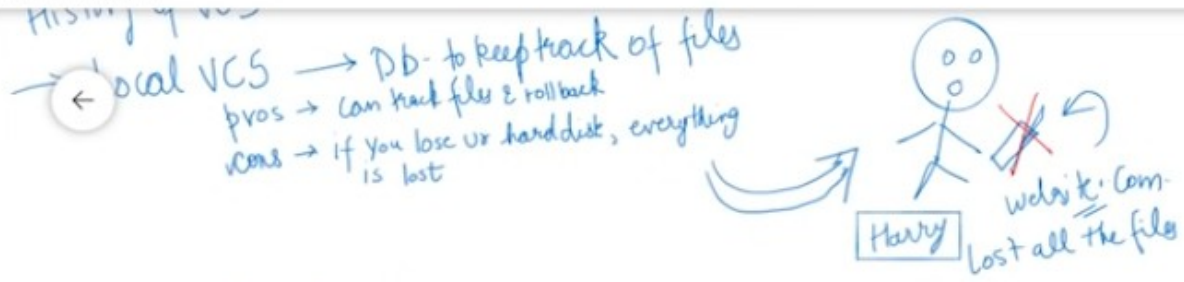 History of VCS
→ Local VCS → Db- to keep track of files
pros → Can track files & rollback
cons → if you lose ur harddisk, everything
is lost
Harry
website.com
Lost all the files